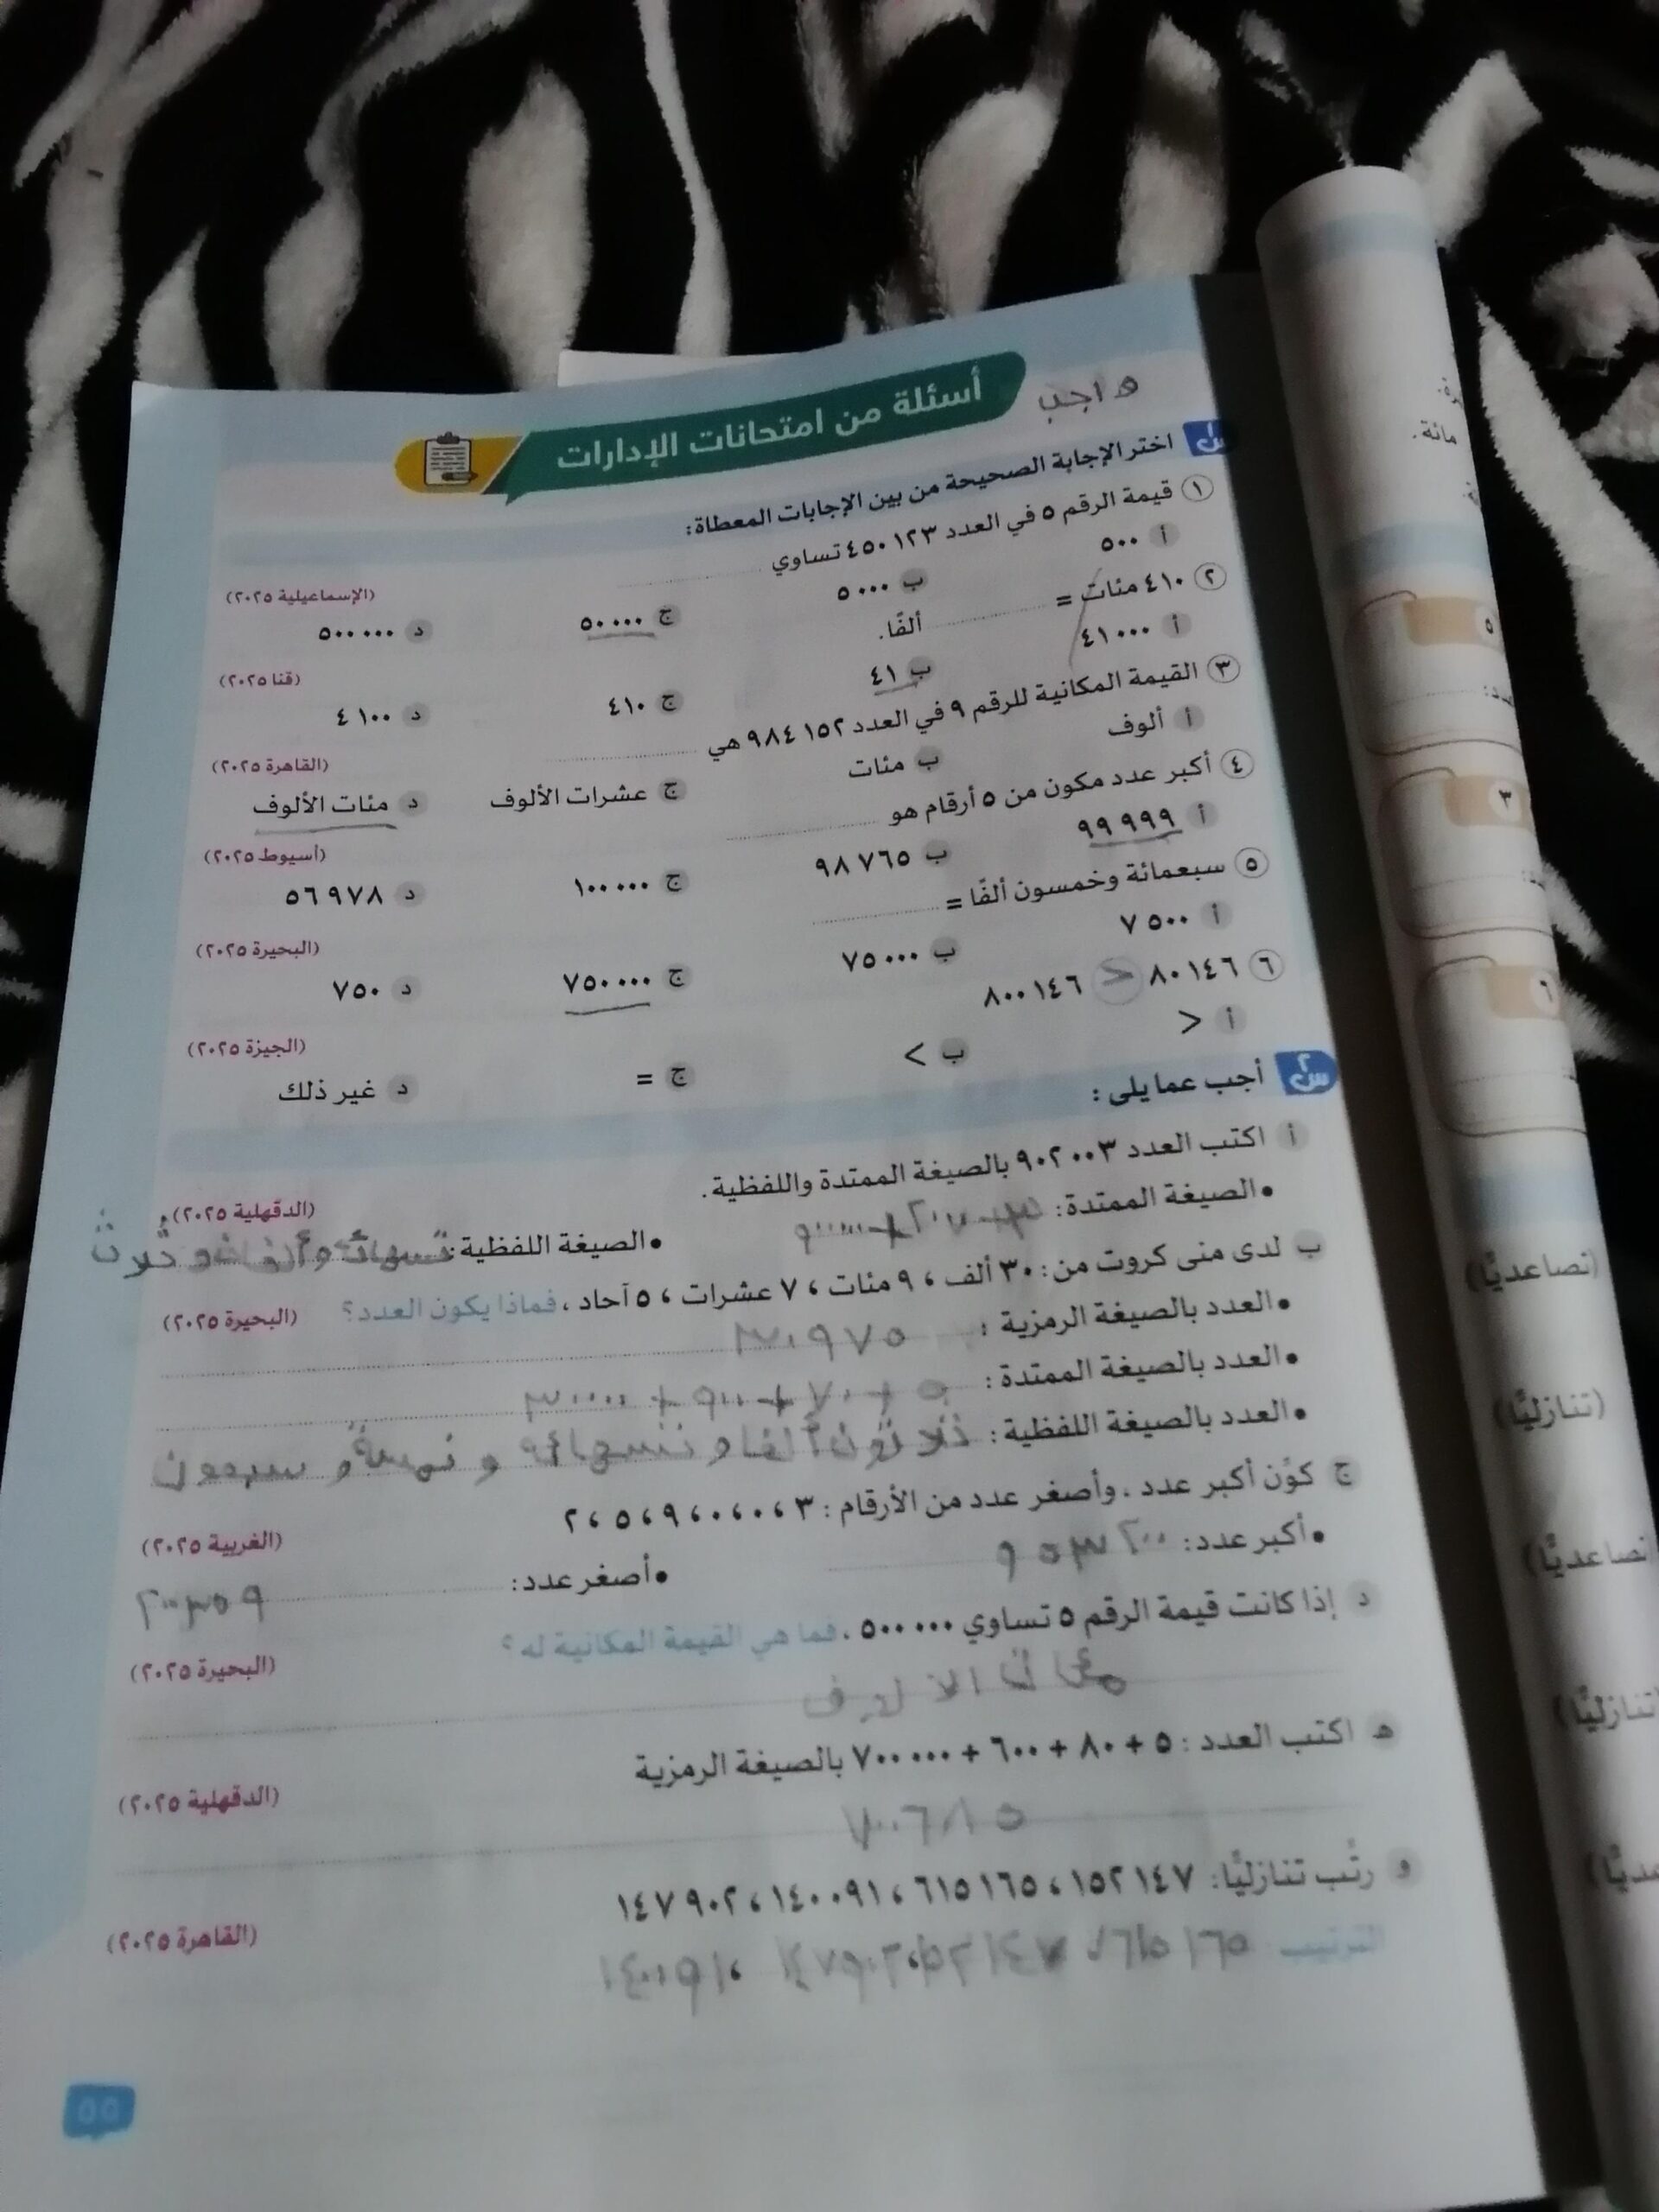 واجب
أسئلة من امتحانات الإدارات
س١ اختر الإجابة الصحيحة من بين الإجابات المعطاة:
١ قيمة الرقم ٥ في العدد ٤٥٠١٢٣ تساوي ............ (الإسماعيلية ٢٠٢٥)
أ ٥٠٠ ب ٥٠٠٠ ج ٥٠٠٠٠ د ٥٠٠٠٠٠
٢ ٤١٠ مئات = ............ ألفًا. (قنا ٢٠٢٥)
أ ٤١٠٠٠ ب ٤١ ج ٤١٠ د ٤١٠٠
٣ القيمة المكانية للرقم ٩ في العدد ٩٨٤١٥٢ هي ............ (القاهرة ٢٠٢٥)
أ ألوف ب مئات ج عشرات الألوف د مئات الألوف
٤ أكبر عدد مكون من ٥ أرقام هو ............ (أسيوط ٢٠٢٥)
أ ٩٩٩٩٩ ب ٩٨٧٦٥ ج ١٠٠٠٠٠ د ٥٦٩٧٨
٥ سبعمائة وخمسون ألفًا = ............ (البحيرة ٢٠٢٥)
أ ٧٥٠٠ ب ٧٥٠٠٠ ج ٧٥٠٠٠٠ د ٧٥٠
٦ ٨٠١٤٦ < ٨٠٠١٤٦ (الجيزة ٢٠٢٥)
أ > ب < ج = د غير ذلك
س٢ أجب عما يلي :
أ اكتب العدد ٩٠٢٠٠٣ بالصيغة الممتدة واللفظية. (الدقهلية ٢٠٢٥)
• الصيغة الممتدة:
• الصيغة اللفظية:
ب لدى منى كروت من: ٣٠ ألف ، ٩ مئات ، ٧ عشرات ، ٥ آحاد ، فماذا يكون العدد؟ (البحيرة ٢٠٢٥)
• العدد بالصيغة الرمزية : ٣٠٩٧٥
• العدد بالصيغة الممتدة : ٥ + ٧٠ + ٩٠٠ + ٣٠٠٠٠
• العدد بالصيغة اللفظية: وخمسة و سبعون
ج كوّن أكبر عدد ، وأصغر عدد من الأرقام : ٣ ، ٠ ، ٠ ، ٩ ، ٥ ، ٢ (الغربية ٢٠٢٥)
• أكبر عدد: ٩٥٣٢٠٠
• أصغر عدد: ٢٠٠٣٥٩
د إذا كانت قيمة الرقم ٥ تساوي ٥٠٠٠٠٠ ، فما هي القيمة المكانية له؟ (البحيرة ٢٠٢٥)
هـ اكتب العدد : ٥ + ٨٠ + ٦٠٠ + ٧٠٠٠٠٠ بالصيغة الرمزية (الدقهلية ٢٠٢٥)
٧٠٠٦٨٥
و رتّب تنازليًّا: ١٥٢١٤٧ ، ٦١٥١٦٥ ، ١٤٠٠٩١ ، ١٤٧٩٠٢ (القاهرة ٢٠٢٥)
الترتيب
٥٥
مائة.
٥
٣
٦
(تصاعديًّا)
(تنازليًّا)